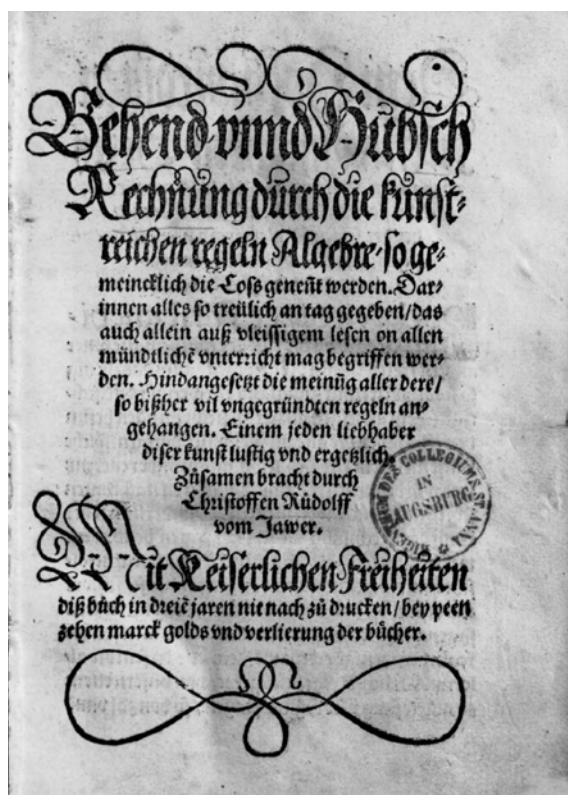 Behend vnnd Hübsch
Rechnung durch die kunst⸗
reichen regeln Algebre⸗so ge⸗
meincklich die Coss geneñt werden. Dar⸗
innen alles so treülich an tag gegeben/das
auch allein auß vleissigem lesen on allen
mündtlichẽ vnterricht mag begriffen wer⸗
den. Hindangesetzt die meinũg aller dere/
so bißher vil vngegründten regeln an⸗
gehangen. Einem jeden liebhaber
diser kunst lustig vnd ergetzlich
Zůsamen bracht durch
Christoffen Růdolff
vom Jawer.
DES COLLEGIUMS ST. ANNA
IN
AUGSBURG
Mit Keiserlichen Freiheiten
diß bůch in dreiẽ jaren nit nach zů drucken/bey peen
zehen marck golds vnd verlierung der bücher.